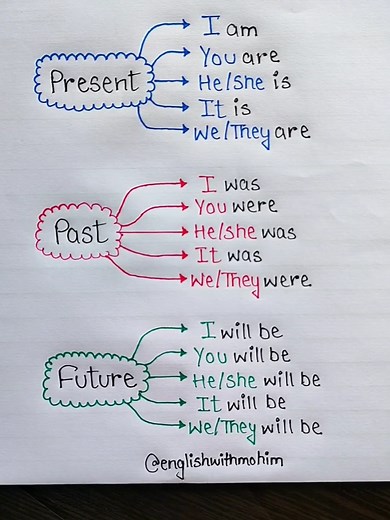 Present
I am
You are
He/She is
It is
We/They are
Past
I was
You were
He/She was
It was
We/They were
Future
I will be
You will be
He/She will be
It will be
We/They will be
@englishwithmohim